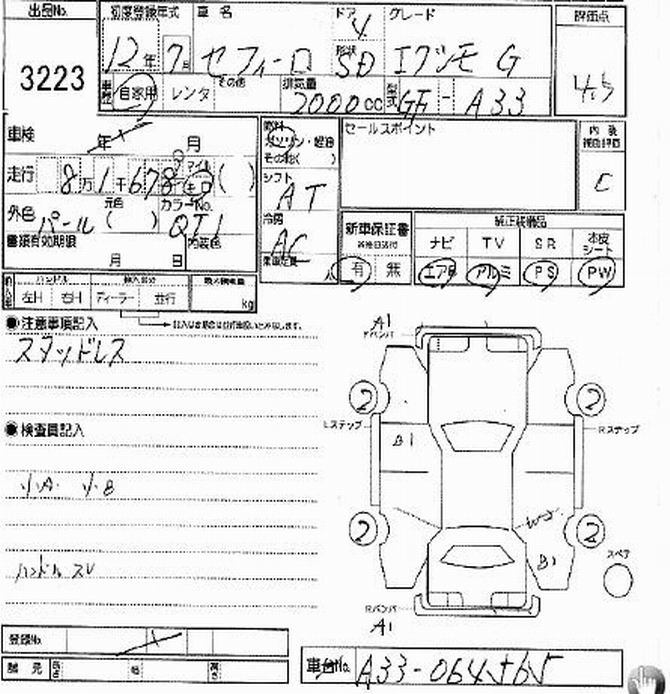 出品No. 初度登録年式 車名 ドア グレード 評価点
3223 12年 7月 セフィーロ 4 形状 SD エクシモ G 4.5
車歴 自家用 レンタ その他 排気量 2000cc 型式 GF - A33
車検 年 月 燃料 ガソリン・軽油 その他( ) セールスポイント 内装 補助評価
走行 8万1千678 マイル キロ ( ) シフト AT C
外色 パール 元色( ) カラーNo. QT1 冷房 AC 新車保証書 純正装備品
書類有効期限 月 日 内装色 乗車定員 人 有 無 ナビ TV SR 本皮シート
エアB アルミ PS PW
ハンドル 左H 右H ディーラー 並行 kg
●注意事項記入
スタッドレス
●検査員記入
小A 小B
ハンドル スレ
A1
Fバンパ
2 2
Lステップ Rステップ
B1
2 2
B1
スペア
Rバンパ
A1
登録No.
諸元 長さ 幅 高さ 車台No. A33-064565